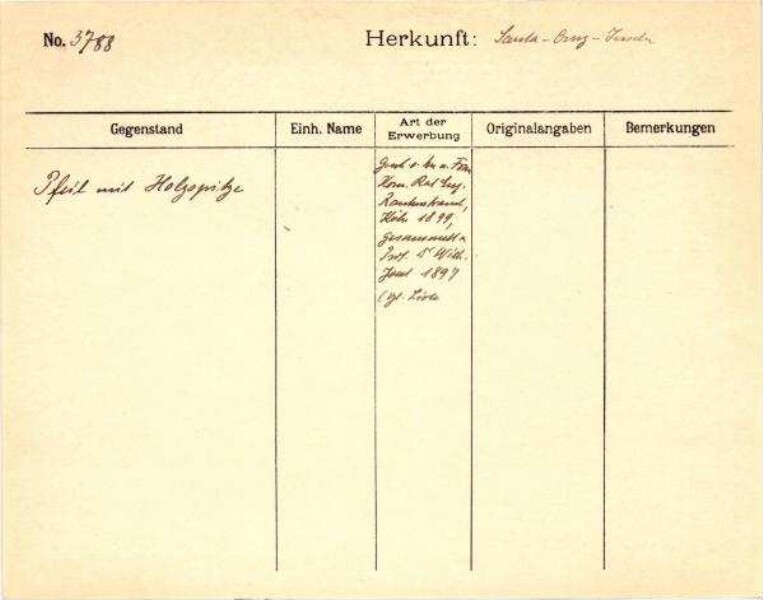 No. 3788
Herkunft: Santa-Cruz-Inseln
Gegenstand
Einh. Name
Art der
Erwerbung
Originalangaben
Bemerkungen
Pfeil mit Holzspitze
Gesch. v. u. Frau
Kom. Rat Eug.
Rautenstrauch,
Köln 1899,
gesammelt v.
Prof. Dr Wilh.
Joest 1897
(vgl. Liste